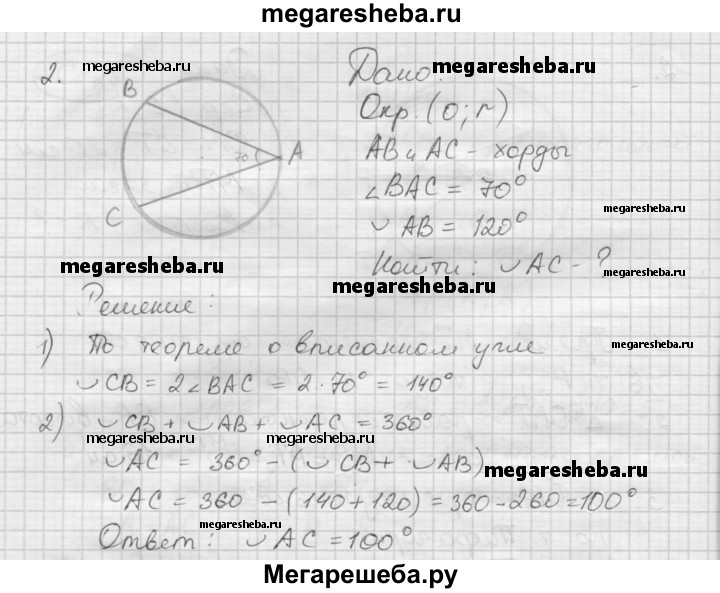 megaresheba.ru
2. megaresheba.ru
B
70
A
C
Дано: megaresheba.ru
Окр. (O; r)
AB и AC - хорды
∠BAC = 70°
megaresheba.ru
◡ AB = 120°
Найти: ◡ AC - ?
megaresheba.ru
megaresheba.ru
megaresheba.ru
Решение:
1) По теореме о вписанном угле
megaresheba.ru
◡ CB = 2∠BAC = 2·70° = 140°
2) ◡ CB + ◡ AB + ◡ AC = 360°
megaresheba.ru megaresheba.ru
◡ AC = 360° - (◡ CB + ◡ AB) megaresheba.ru
◡ AC = 360 - (140 + 120) = 360 - 260 = 100°
megaresheba.ru
Ответ: ◡ AC = 100°
Мегарешеба.ру